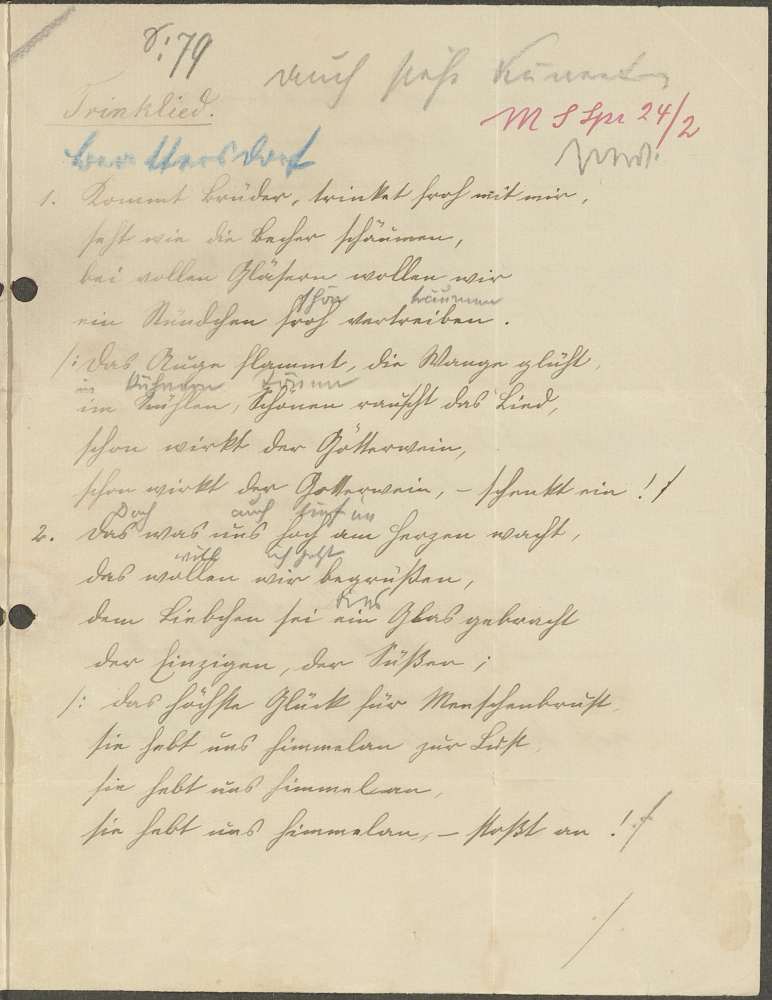 79
auch siehe
Trinklied.
M S Spr 24/2
1. Kommt Brüder, trinket froh mit mir,
seht wie die Becher schäumen,
bei vollen Gläsern wollen wir
schön träumen
ein Stündchen froh vertreiben.
/: Das Auge flammt, die Wange glüht,
in kühnern Tönen
im kühlen, Schönen rauscht das Lied,
schon wirkt der Götterwein,
schon wirkt der Götterwein, – schenkt ein! :/
Doch auch tief im
2. Das was uns hoch am Herzen wacht,
will ich jetzt
das wollen wir begrüßen,
dies
dem Liebchen sei ein Glas gebracht
der Einzigen, der Süßen;
/: das höchste Glück für Menschenbrust
sie hebt uns himmelan zur Lust,
sie hebt uns himmelan,
sie hebt uns himmelan, – stoßt an! :/